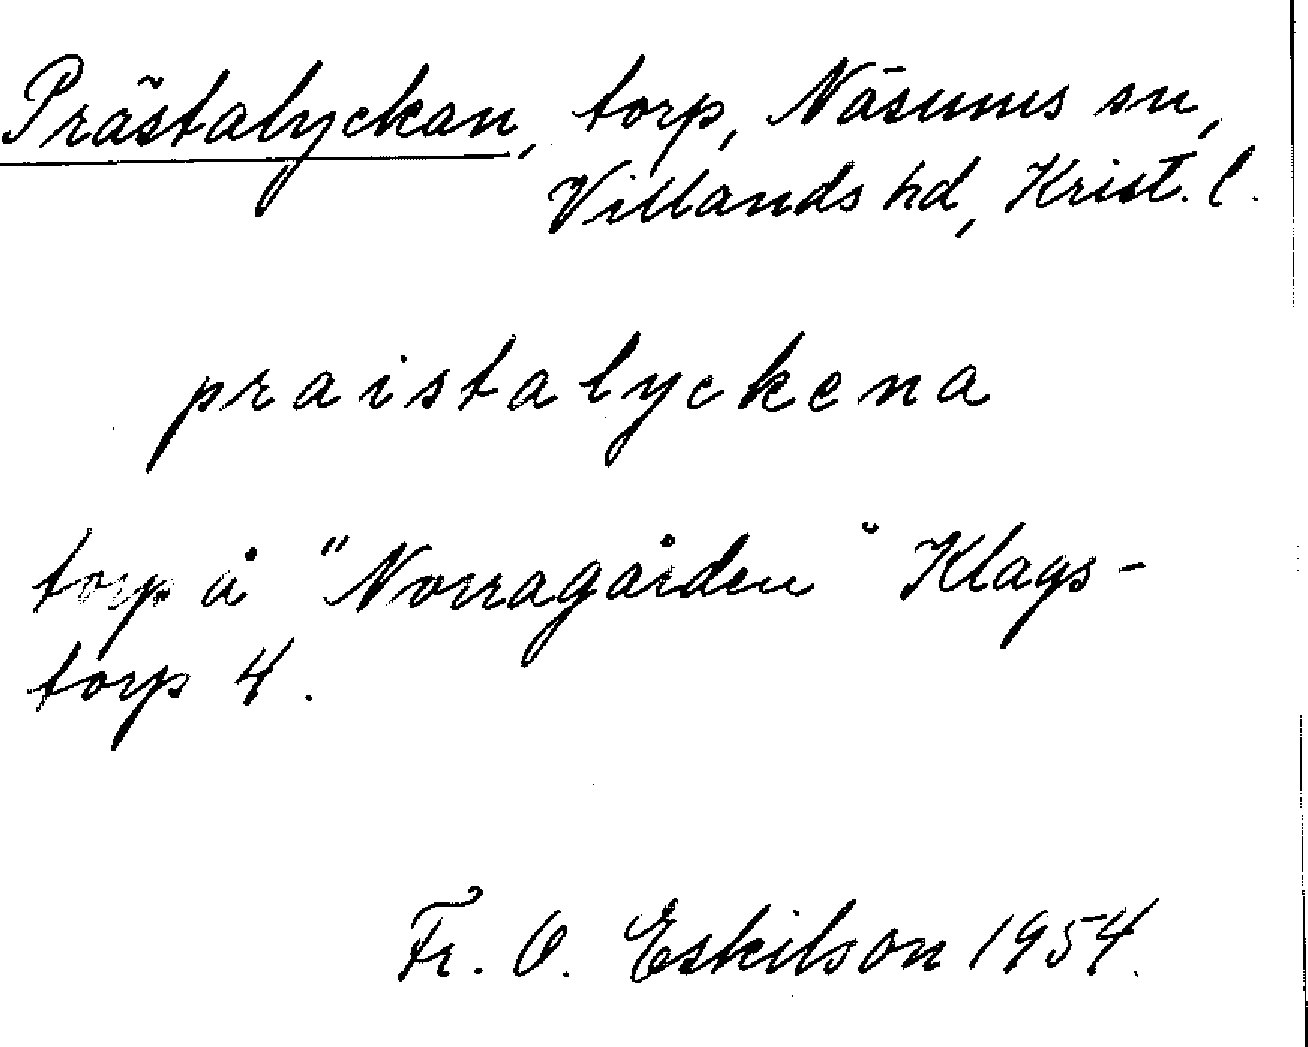 Prästalyckan, torp, Näsums sn,
Villands hd, Krist. l.
praistalyckena
torp å "Norragården" Klags-
torp 4.
Fr. O. Eskilson 1954.